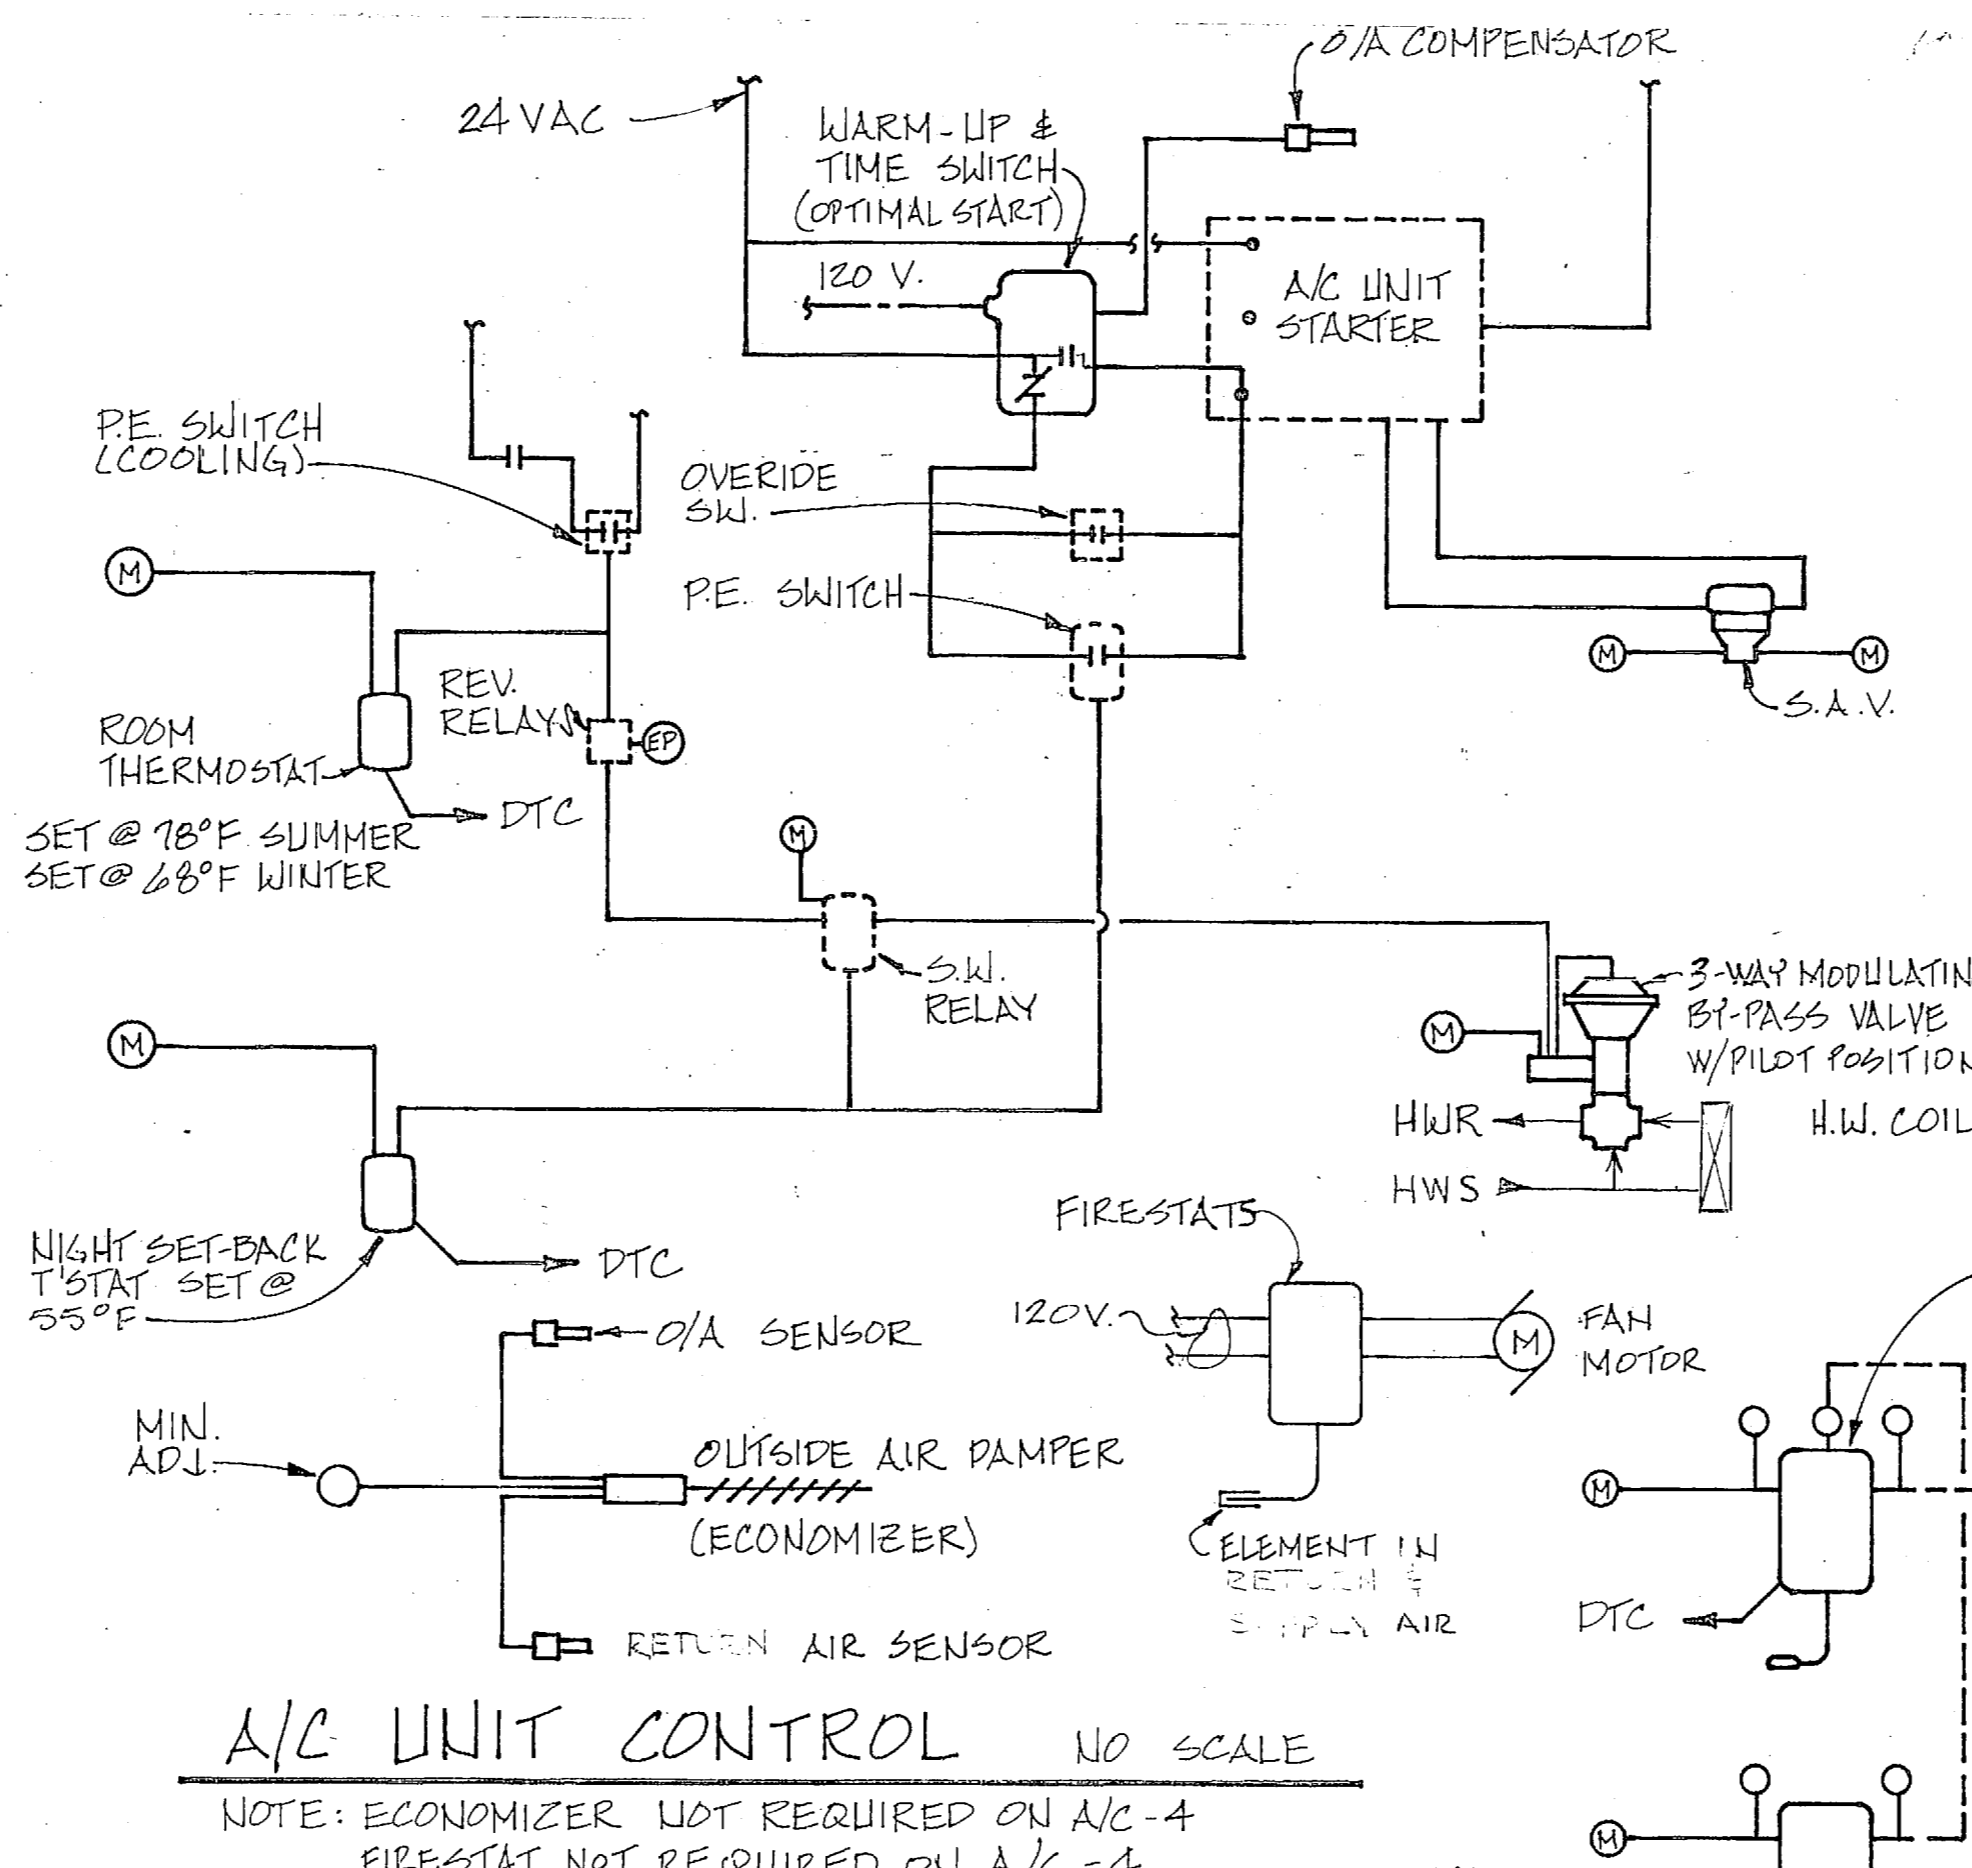 O/A COMPENSATOR
24 VAC
WARM-UP &
TIME SWITCH
(OPTIMAL START)
120 V.
A/C UNIT
STARTER
P.E. SWITCH
(COOLING)
OVERIDE
SW.
M
P.E. SWITCH
M
M
S.A.V.
REV.
RELAY
EP
ROOM
THERMOSTAT
DTC
SET @ 78°F SUMMER
SET @ 68°F WINTER
M
S.W.
RELAY
3-WAY MODULATIN
BY-PASS VALVE
W/PILOT POSITION
M
M
HWR
H.W. COIL
HWS
FIRESTATS
NIGHT SET-BACK
T'STAT SET @
55°F
DTC
120V.
M
FAN
MOTOR
O/A SENSOR
MIN.
ADJ.
OUTSIDE AIR DAMPER
(ECONOMIZER)
M
ELEMENT IN
RETURN &
SUPPLY AIR
DTC
RETURN AIR SENSOR
A/C UNIT CONTROL NO SCALE
NOTE: ECONOMIZER NOT REQUIRED ON A/C-4
FIRESTAT NOT REQUIRED ON A/C-4
M